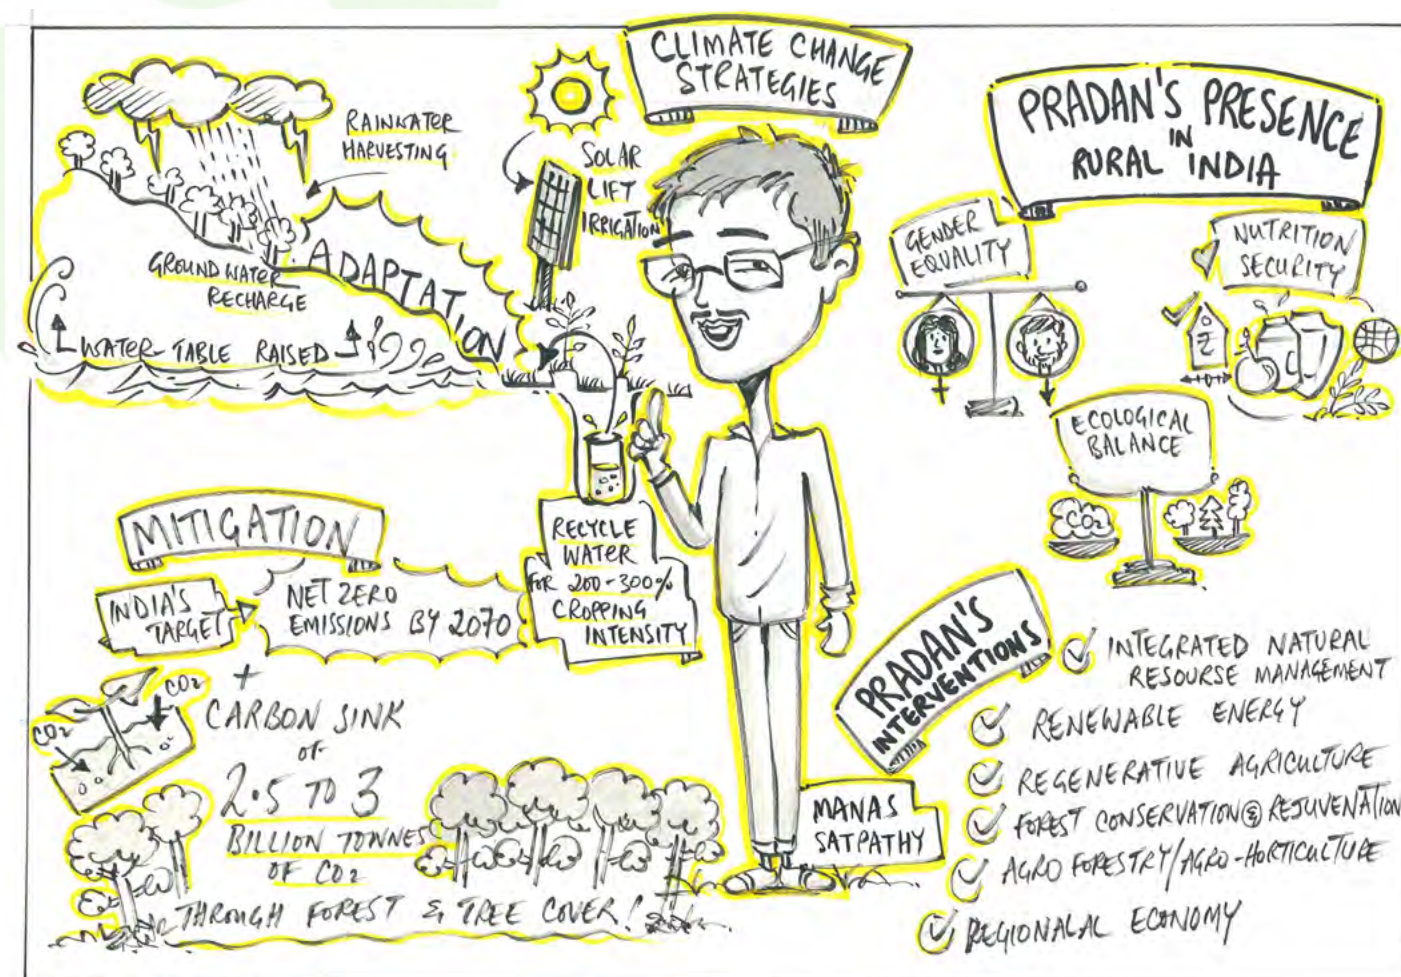 CLIMATE CHANGE
STRATEGIES
RAINWATER
HARVESTING
GROUND WATER
RECHARGE
WATER TABLE RAISED
ADAPTATION
SOLAR
LIFT
IRRIGATION
RECYCLE
WATER
FOR 200-300%
CROPPING
INTENSITY
MITIGATION
INDIA'S
TARGET
NET ZERO
EMISSIONS BY 2070
+
CO2
CO2
CARBON SINK
OF
2.5 TO 3
BILLION TONNES
OF CO2
THROUGH FOREST & TREE COVER!
MANAS
SATPATHY
PRADAN'S PRESENCE
IN
RURAL INDIA
GENDER
EQUALITY
NUTRITION
SECURITY
ECOLOGICAL
BALANCE
CO2
PRADAN'S
INTERVENTIONS
INTEGRATED NATURAL
RESOURSE MANAGEMENT
RENEWABLE ENERGY
REGENERATIVE AGRICULTURE
FOREST CONSERVATION & REJUVENATION
AGRO FORESTRY/AGRO-HORTICULTURE
REGIONALAL ECONOMY